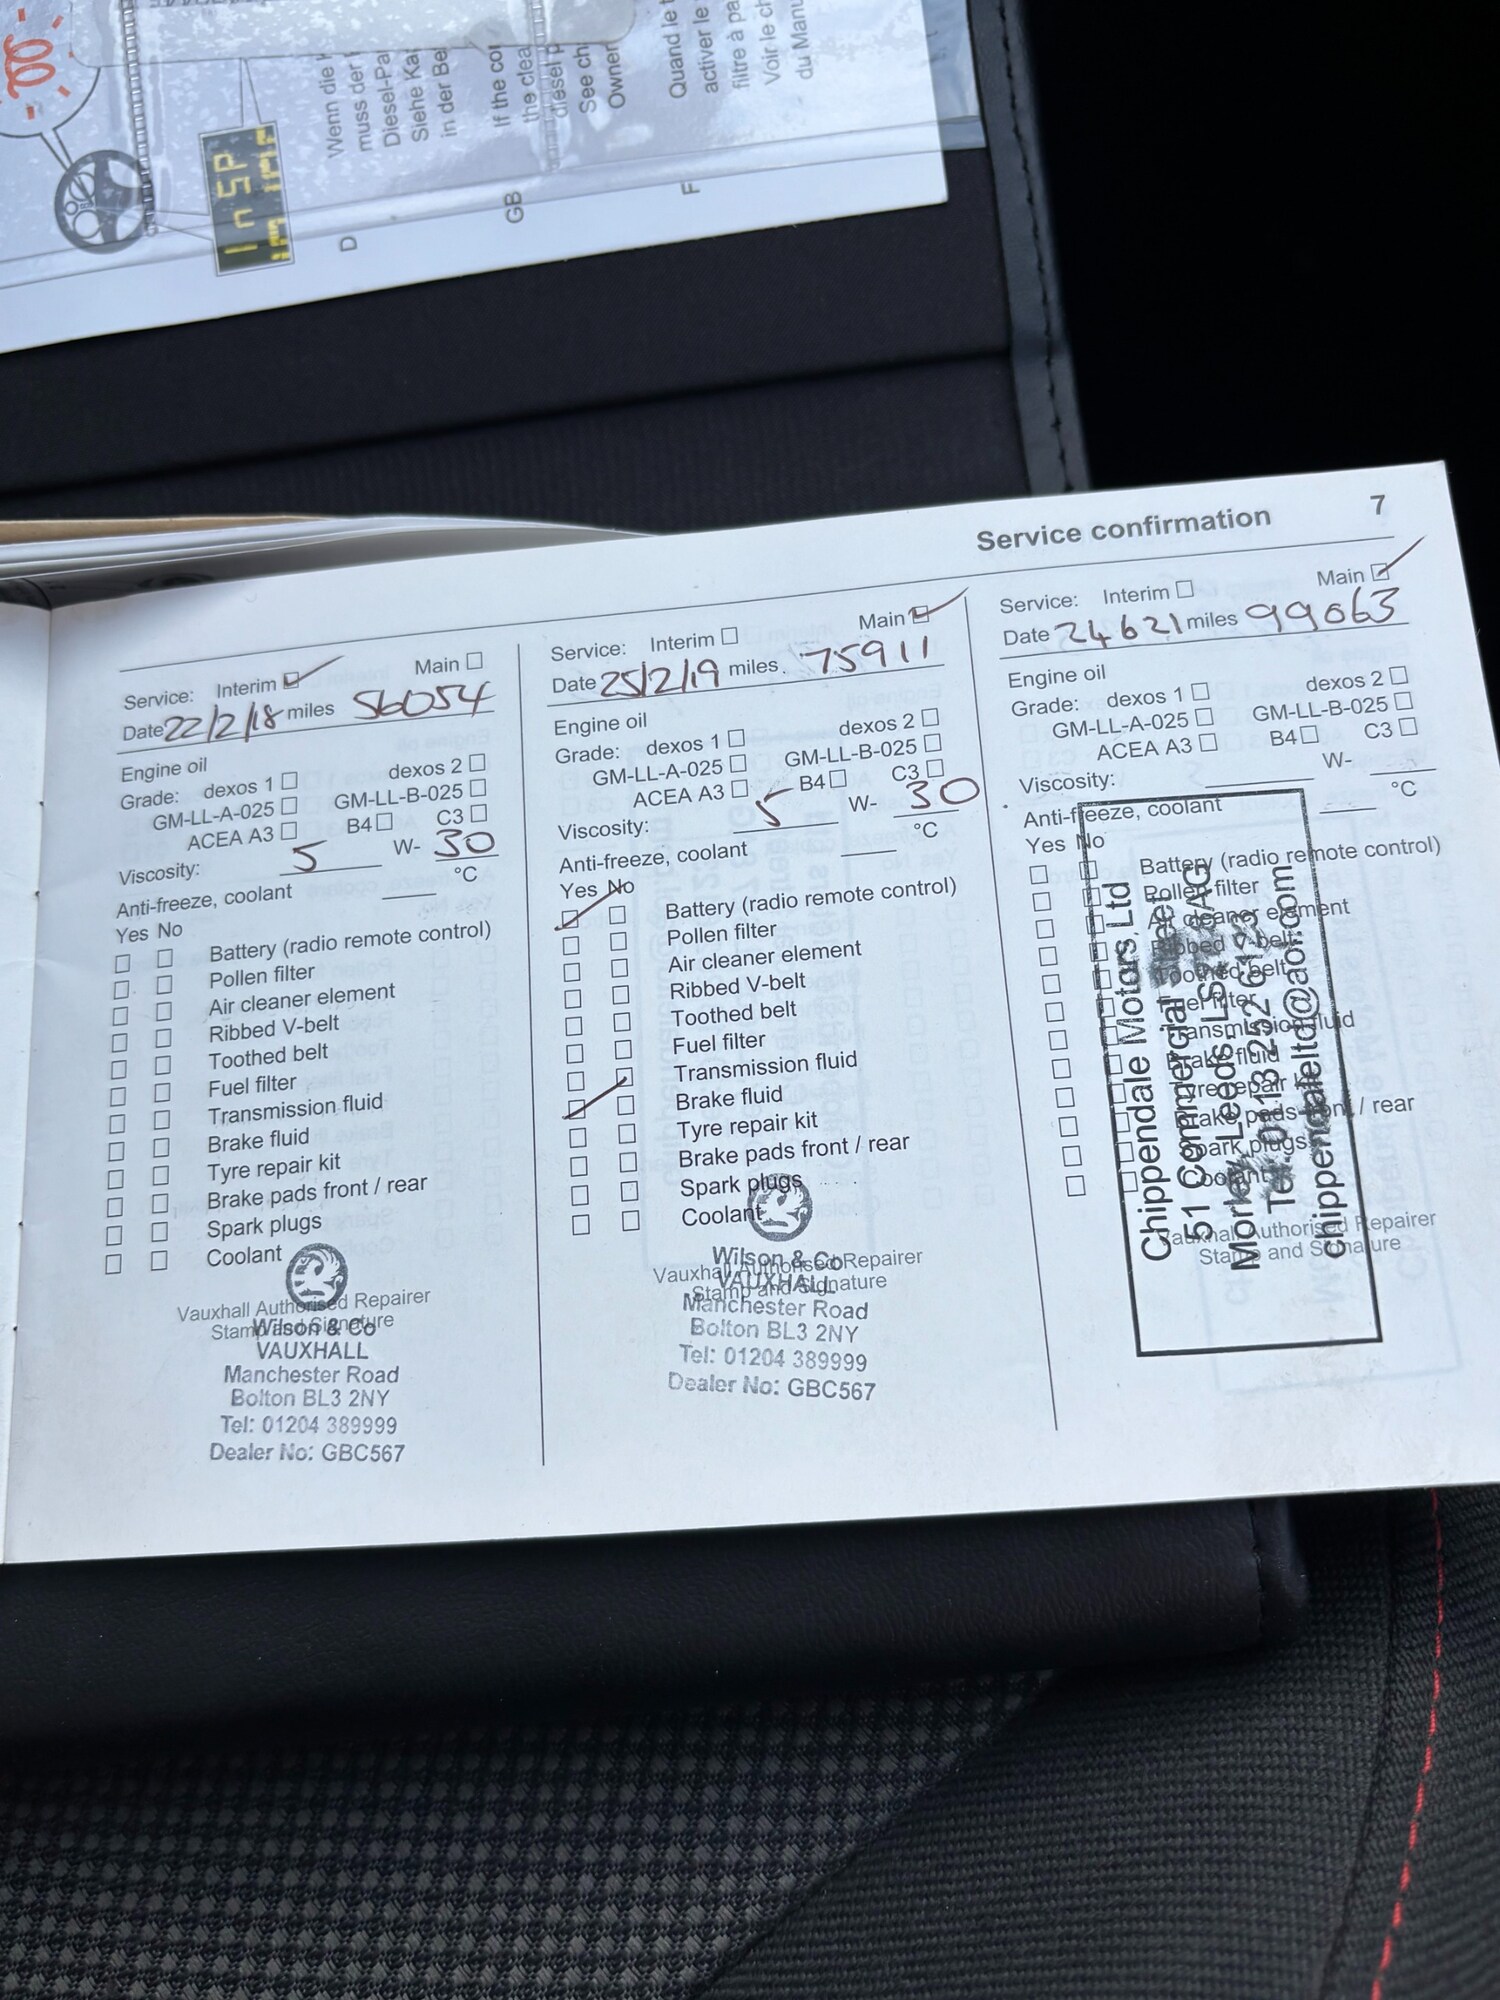 InSP
D
Wenn die
muss der
Diesel-Pa
Siehe Ka
in der Be
GB
If the co
the clea
diesel p
See ch
Owner
F
Quand le t
activer le
filtre à pa
Voir le ch
du Manu
Service confirmation 7
Service: Interim Main
Date 22/2/18 miles 56054
Engine oil
Grade: dexos 1 dexos 2
GM-LL-A-025 GM-LL-B-025
ACEA A3 B4 C3
Viscosity: 5 W- 30
Anti-freeze, coolant °C
Yes No
Battery (radio remote control)
Pollen filter
Air cleaner element
Ribbed V-belt
Toothed belt
Fuel filter
Transmission fluid
Brake fluid
Tyre repair kit
Brake pads front / rear
Spark plugs
Coolant
Vauxhall Authorised Repairer
Stamp and Signature
Wilson & Co
VAUXHALL
Manchester Road
Bolton BL3 2NY
Tel: 01204 389999
Dealer No: GBC567
Service: Interim Main
Date 25/2/19 miles 75911
Engine oil
Grade: dexos 1 dexos 2
GM-LL-A-025 GM-LL-B-025
ACEA A3 B4 C3
Viscosity: 5 W- 30
Anti-freeze, coolant °C
Yes No
Battery (radio remote control)
Pollen filter
Air cleaner element
Ribbed V-belt
Toothed belt
Fuel filter
Transmission fluid
Brake fluid
Tyre repair kit
Brake pads front / rear
Spark plugs
Coolant
Vauxhall Authorised Repairer
Stamp and Signature
Wilson & Co
VAUXHALL
Manchester Road
Bolton BL3 2NY
Tel: 01204 389999
Dealer No: GBC567
Service: Interim Main
Date 24621 miles 99063
Engine oil
Grade: dexos 1 dexos 2
GM-LL-A-025 GM-LL-B-025
ACEA A3 B4 C3
Viscosity: W-
Anti-freeze, coolant °C
Yes No
Battery (radio remote control)
Pollen filter
Air cleaner element
Ribbed V-belt
Toothed belt
Fuel filter
Transmission fluid
Brake fluid
Tyre repair kit
Brake pads front / rear
Spark plugs
Coolant
Vauxhall Authorised Repairer
Stamp and Signature
Chippendale Motors Ltd
51 Commercial Street
Morley, Leeds, LS27 8AG
Tel: 0113 252 6123
chippendaleltd@aol.com